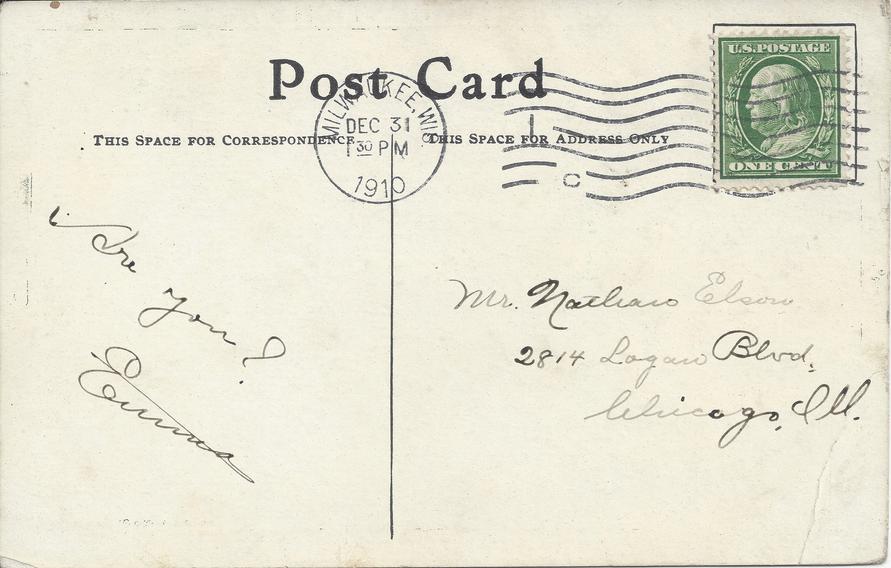 Post Card
THIS SPACE FOR CORRESPONDENCE
THIS SPACE FOR ADDRESS ONLY
MILWAUKEE, WIS
DEC 31
1 30 PM
1910
C
U.S. POSTAGE
ONE CENT
Are
you?
Emma
Mr. Nathan Elson
2814 Logan Blvd.
Chicago, Ill.